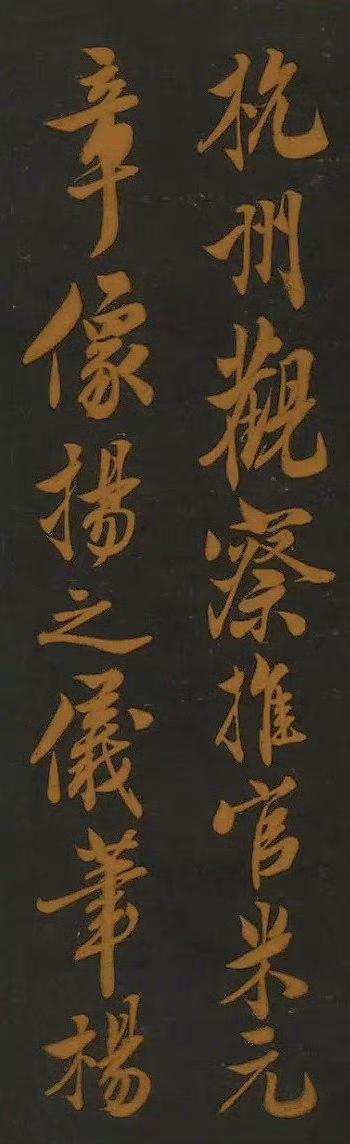 杭州觀察推官米元
章像揚之儀筆楊